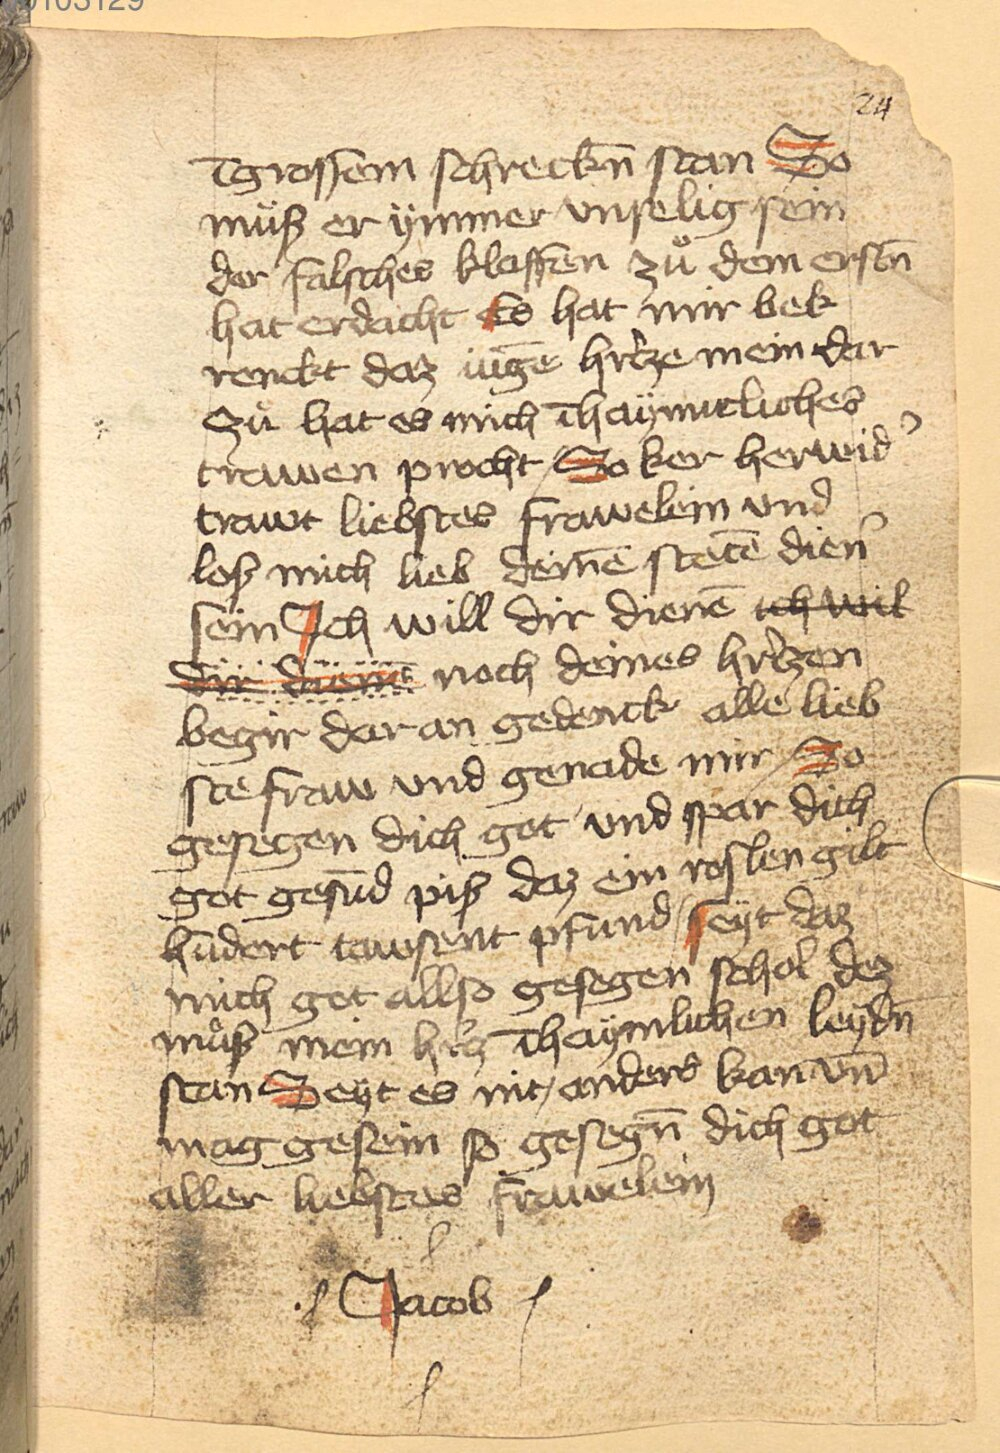 0103129
24
Jgrossem schreckn̄ stan So
muͤsz er ÿmmer vnselig sein
der falsches klaffen zuͦ dem erstn̄
hat erdacht Es hat mir bek
renckt daz iūge hr̄tze mein dar
zuͦ hat es mich īhaÿmeliches
trawen procht So ker herwid'
trawt liebstes frawelein vnd
losz mich lieb deinē̄ stetē dien'
sein Ich will dir dienē ich wil
dir dienē noch deines hr̄tzen
begir dar an gedenck alle lieb
ste fraw vnd genade mir / So
gesegen dich got vnd spar dich
got gesūd pisz daz ein roslen gilt
hūdert tawsent pfund / seÿt daz
mich got allso gesegen schol dez
muͦsz mein hr̄tz īhaÿmlichen leÿdn̄
stan Seÿt es nit / anders kan vn̄
mag gesein so gesegn̄ dich got
aller liebstes frawelein
Jacob